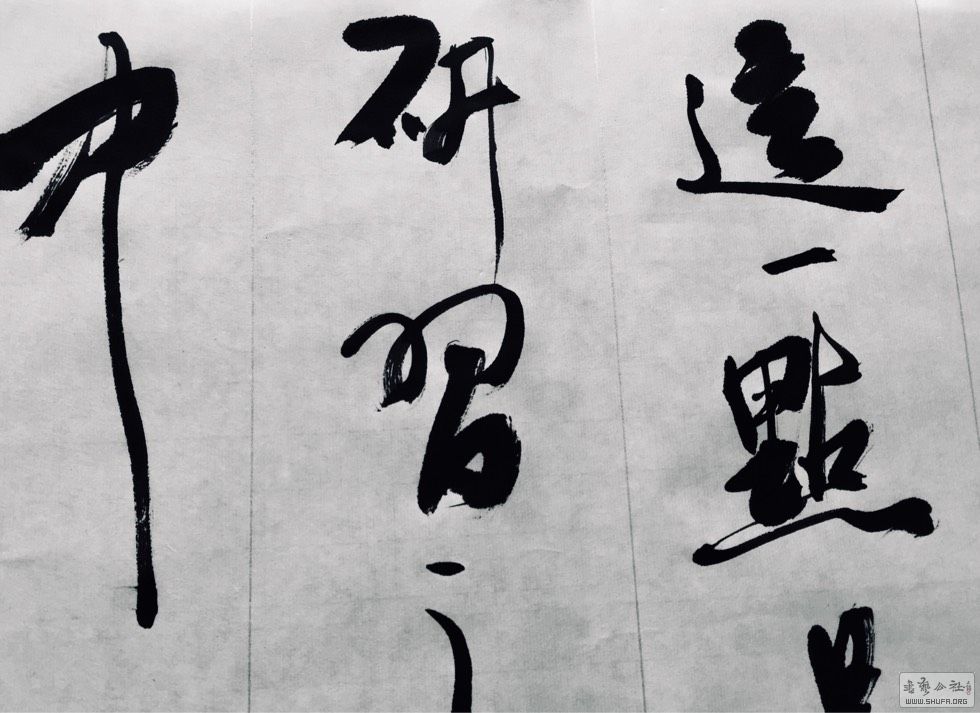 這一點
研習
中
書藝公社
WWW.SHUFA.ORG